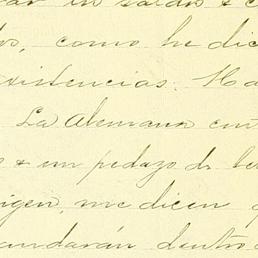 en saldos & c
os, como he dic
existencias. Ha
La Alemana em
s & un pedazo de
igen, me dicen q
andarán dentro